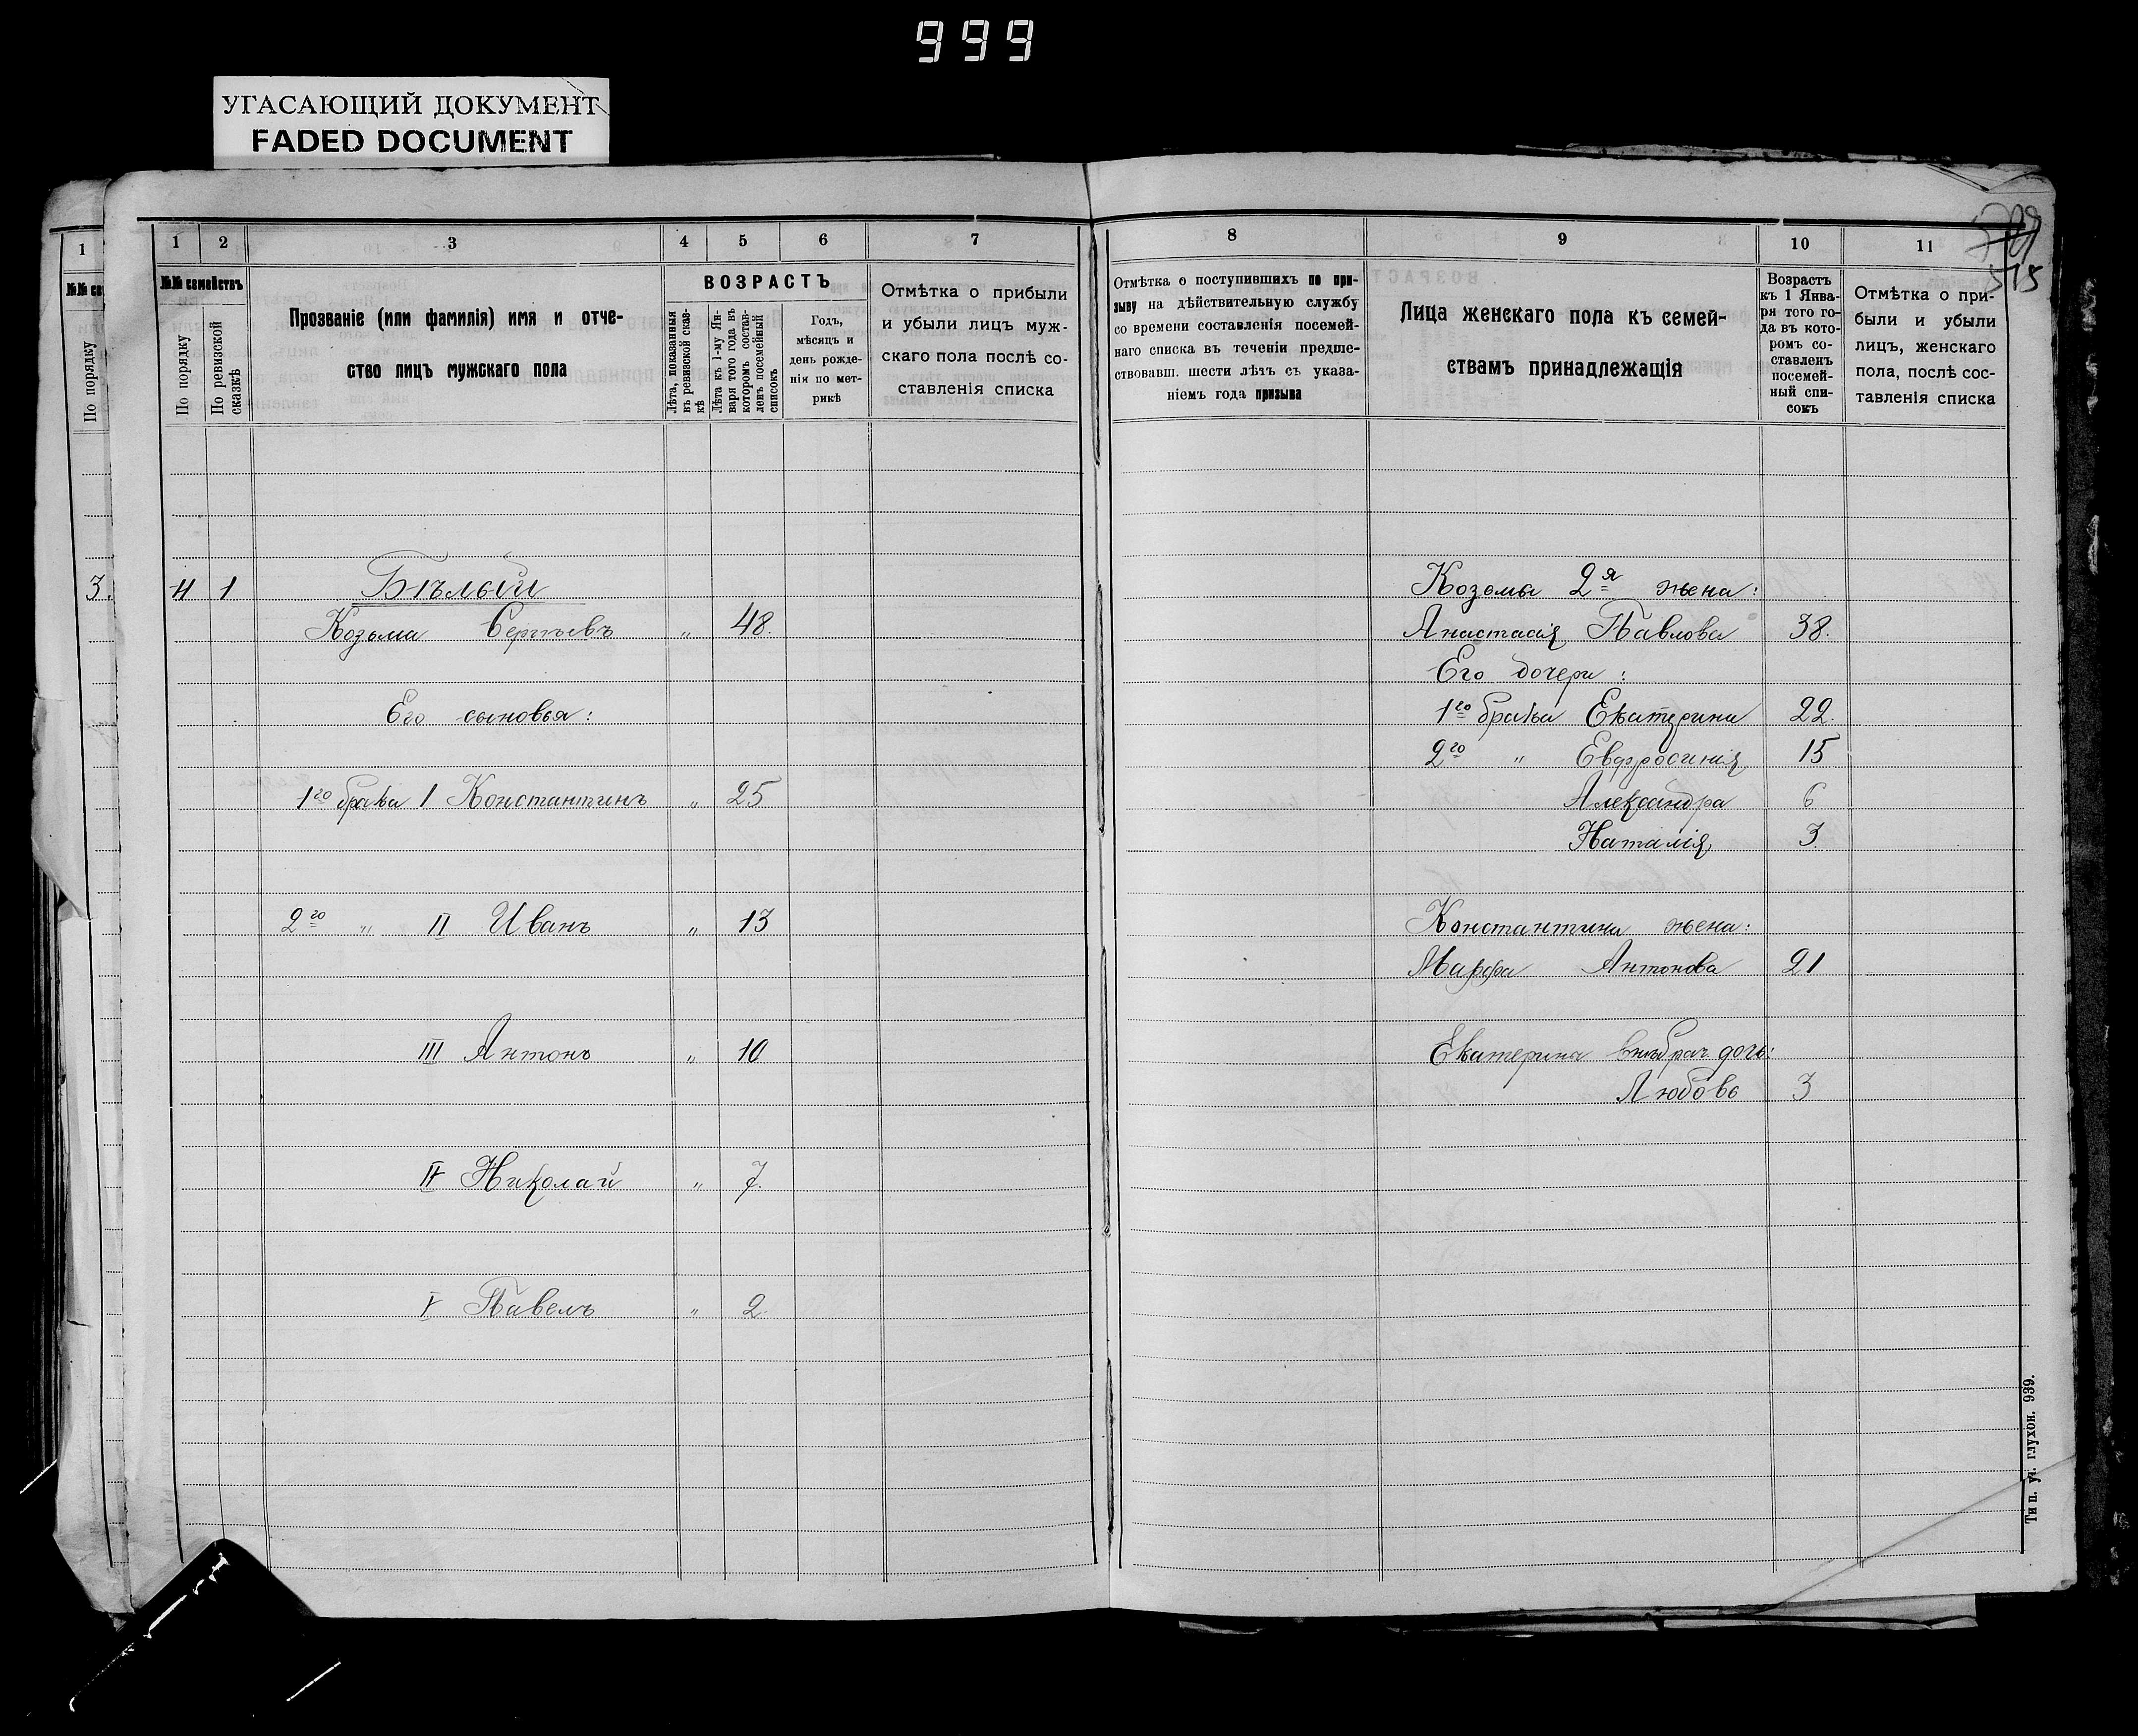 999
УГАСАЮЩИЙ ДОКУМЕНТ
FADED DOCUMENT
1
№№ се
По порядку
3.
1 2 3 4 5 6 7
№№ семействъ
По порядку
По ревизской сказкѣ
Прозваніе (или фамилія) имя и отче-
ство лицъ мужскаго пола
ВОЗРАСТЪ
Лѣта, показанныя
въ ревизской сказ-
кѣ
Лѣта къ 1-му Ян-
варя того года въ
которомъ состав-
ленъ посемейный
списокъ
Годъ,
мѣсяцъ и
день рожде-
нія по мет-
рикѣ
Отмѣтка о прибыли
и убыли лицъ муж-
скаго пола послѣ со-
ставленія списка
4 1 Бѣлый
Козьма Сергѣевъ „ 48.
Его сыновья:
1го брака I Константинъ „ 25
2го „ II Иванъ „ 13
III Антонъ „ 10
IV Николай „ 7.
V Павелъ „ 2.
8 9 10 11
515
Отмѣтка о поступившихъ по при-
зыву на дѣйствительную службу
со времени составленія посемей-
наго списка въ теченіи предше-
ствовавш. шести лѣтъ съ указа-
ніемъ года призыва
Лица женскаго пола къ семей-
ствамъ принадлежащія
Возрастъ
къ 1 Янва-
ря того го-
да въ кото-
ромъ со-
ставленъ
посемей-
ный спи-
сокъ
Отмѣтка о при-
были и убыли
лицъ, женскаго
пола, послѣ сос-
тавленія списка
Козьмы 2я жена:
Анастасія Павлова 38.
Его дочери:
1го брака Екатерина 22.
2го „ Евфросинія 15
Александра 6
Наталія 3.
Константина жена:
Марфа Антонова 21
Екатерины внѣбрач. дочь:
Любовь 3
Тип. уч. глухон. 939.